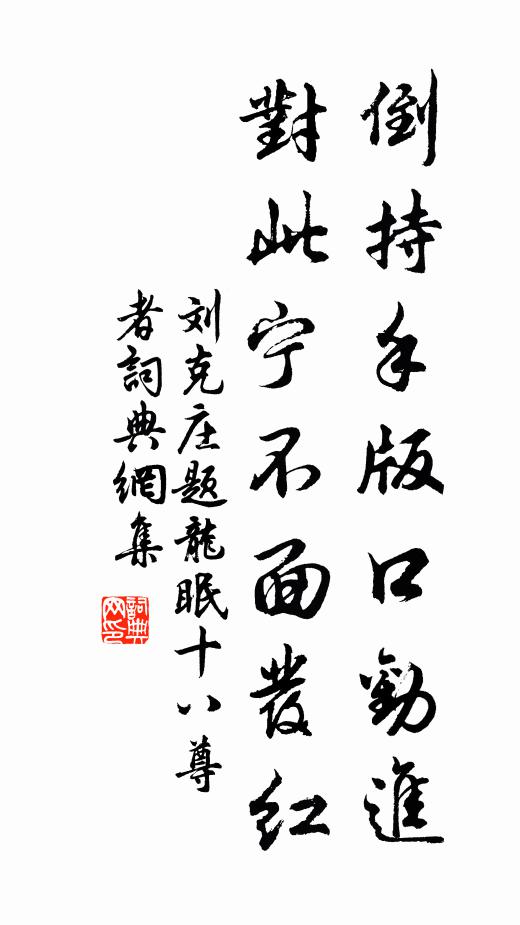 倒持手版口勸進
對此宁不面發红
刘克庄题龍眠十八尊
者詞典網集
詞典
网印